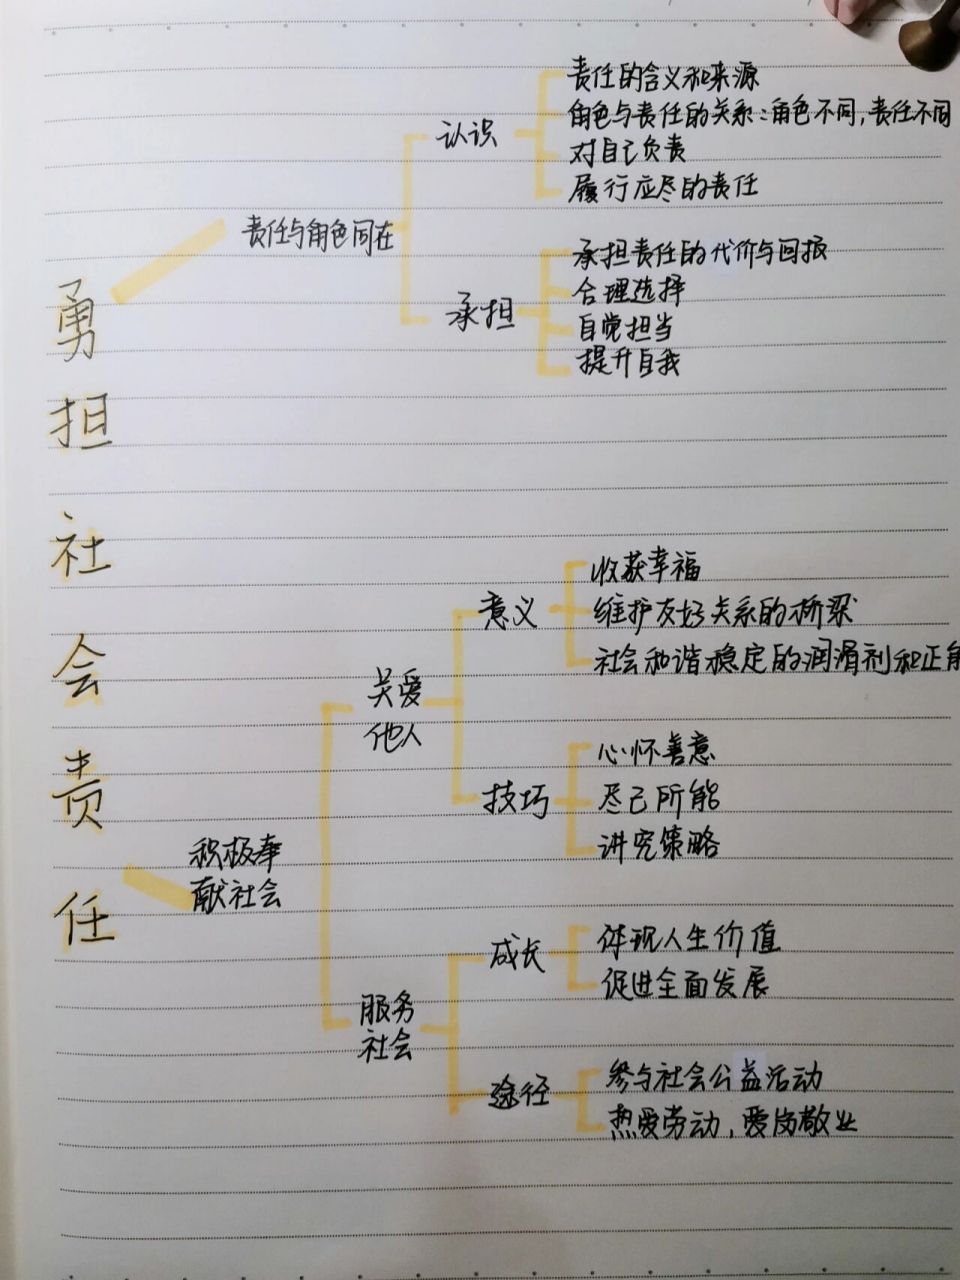 勇担社会责任
责任与角色同在
认识
责任的含义和来源
角色与责任的关系：角色不同，责任不同
对自己负责
履行应尽的责任
承担
承担责任的代价与回报
合理选择
自觉担当
提升自我
积极奉
献社会
关爱
他人
意义
收获幸福
维护友好关系的桥梁
社会和谐稳定的润滑剂和正
技巧
心怀善意
尽己所能
讲究策略
服务
社会
成长
体现人生价值
促进全面发展
途径
参与社会公益活动
热爱劳动，爱岗敬业